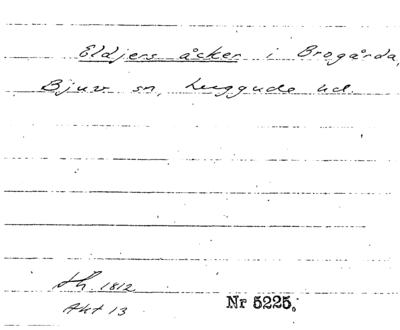 Eldjers åcker i Brogårda,
Bjuv sn, Luggude hd.
Sk. 1812
Akt 13
Nr 5225.